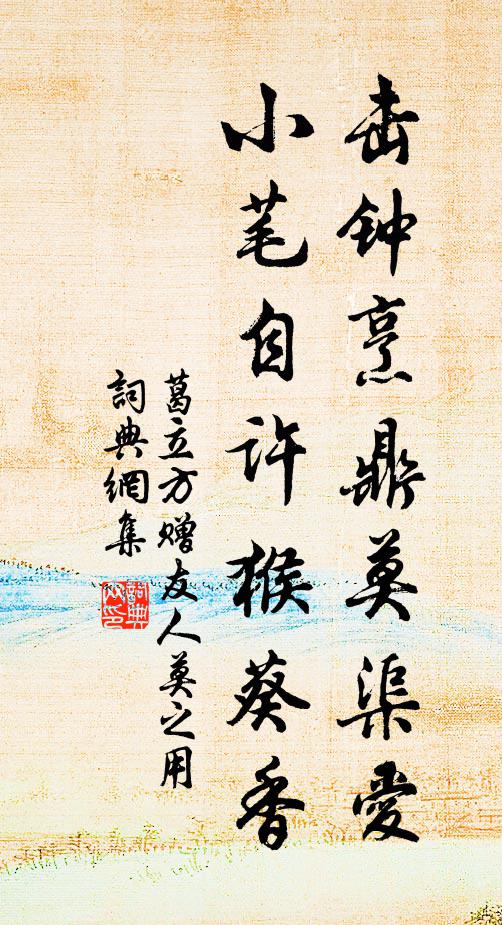 击钟烹鼎莫渠爱
小芼自许猴葵香
葛立方赠友人莫之用
詞典網集